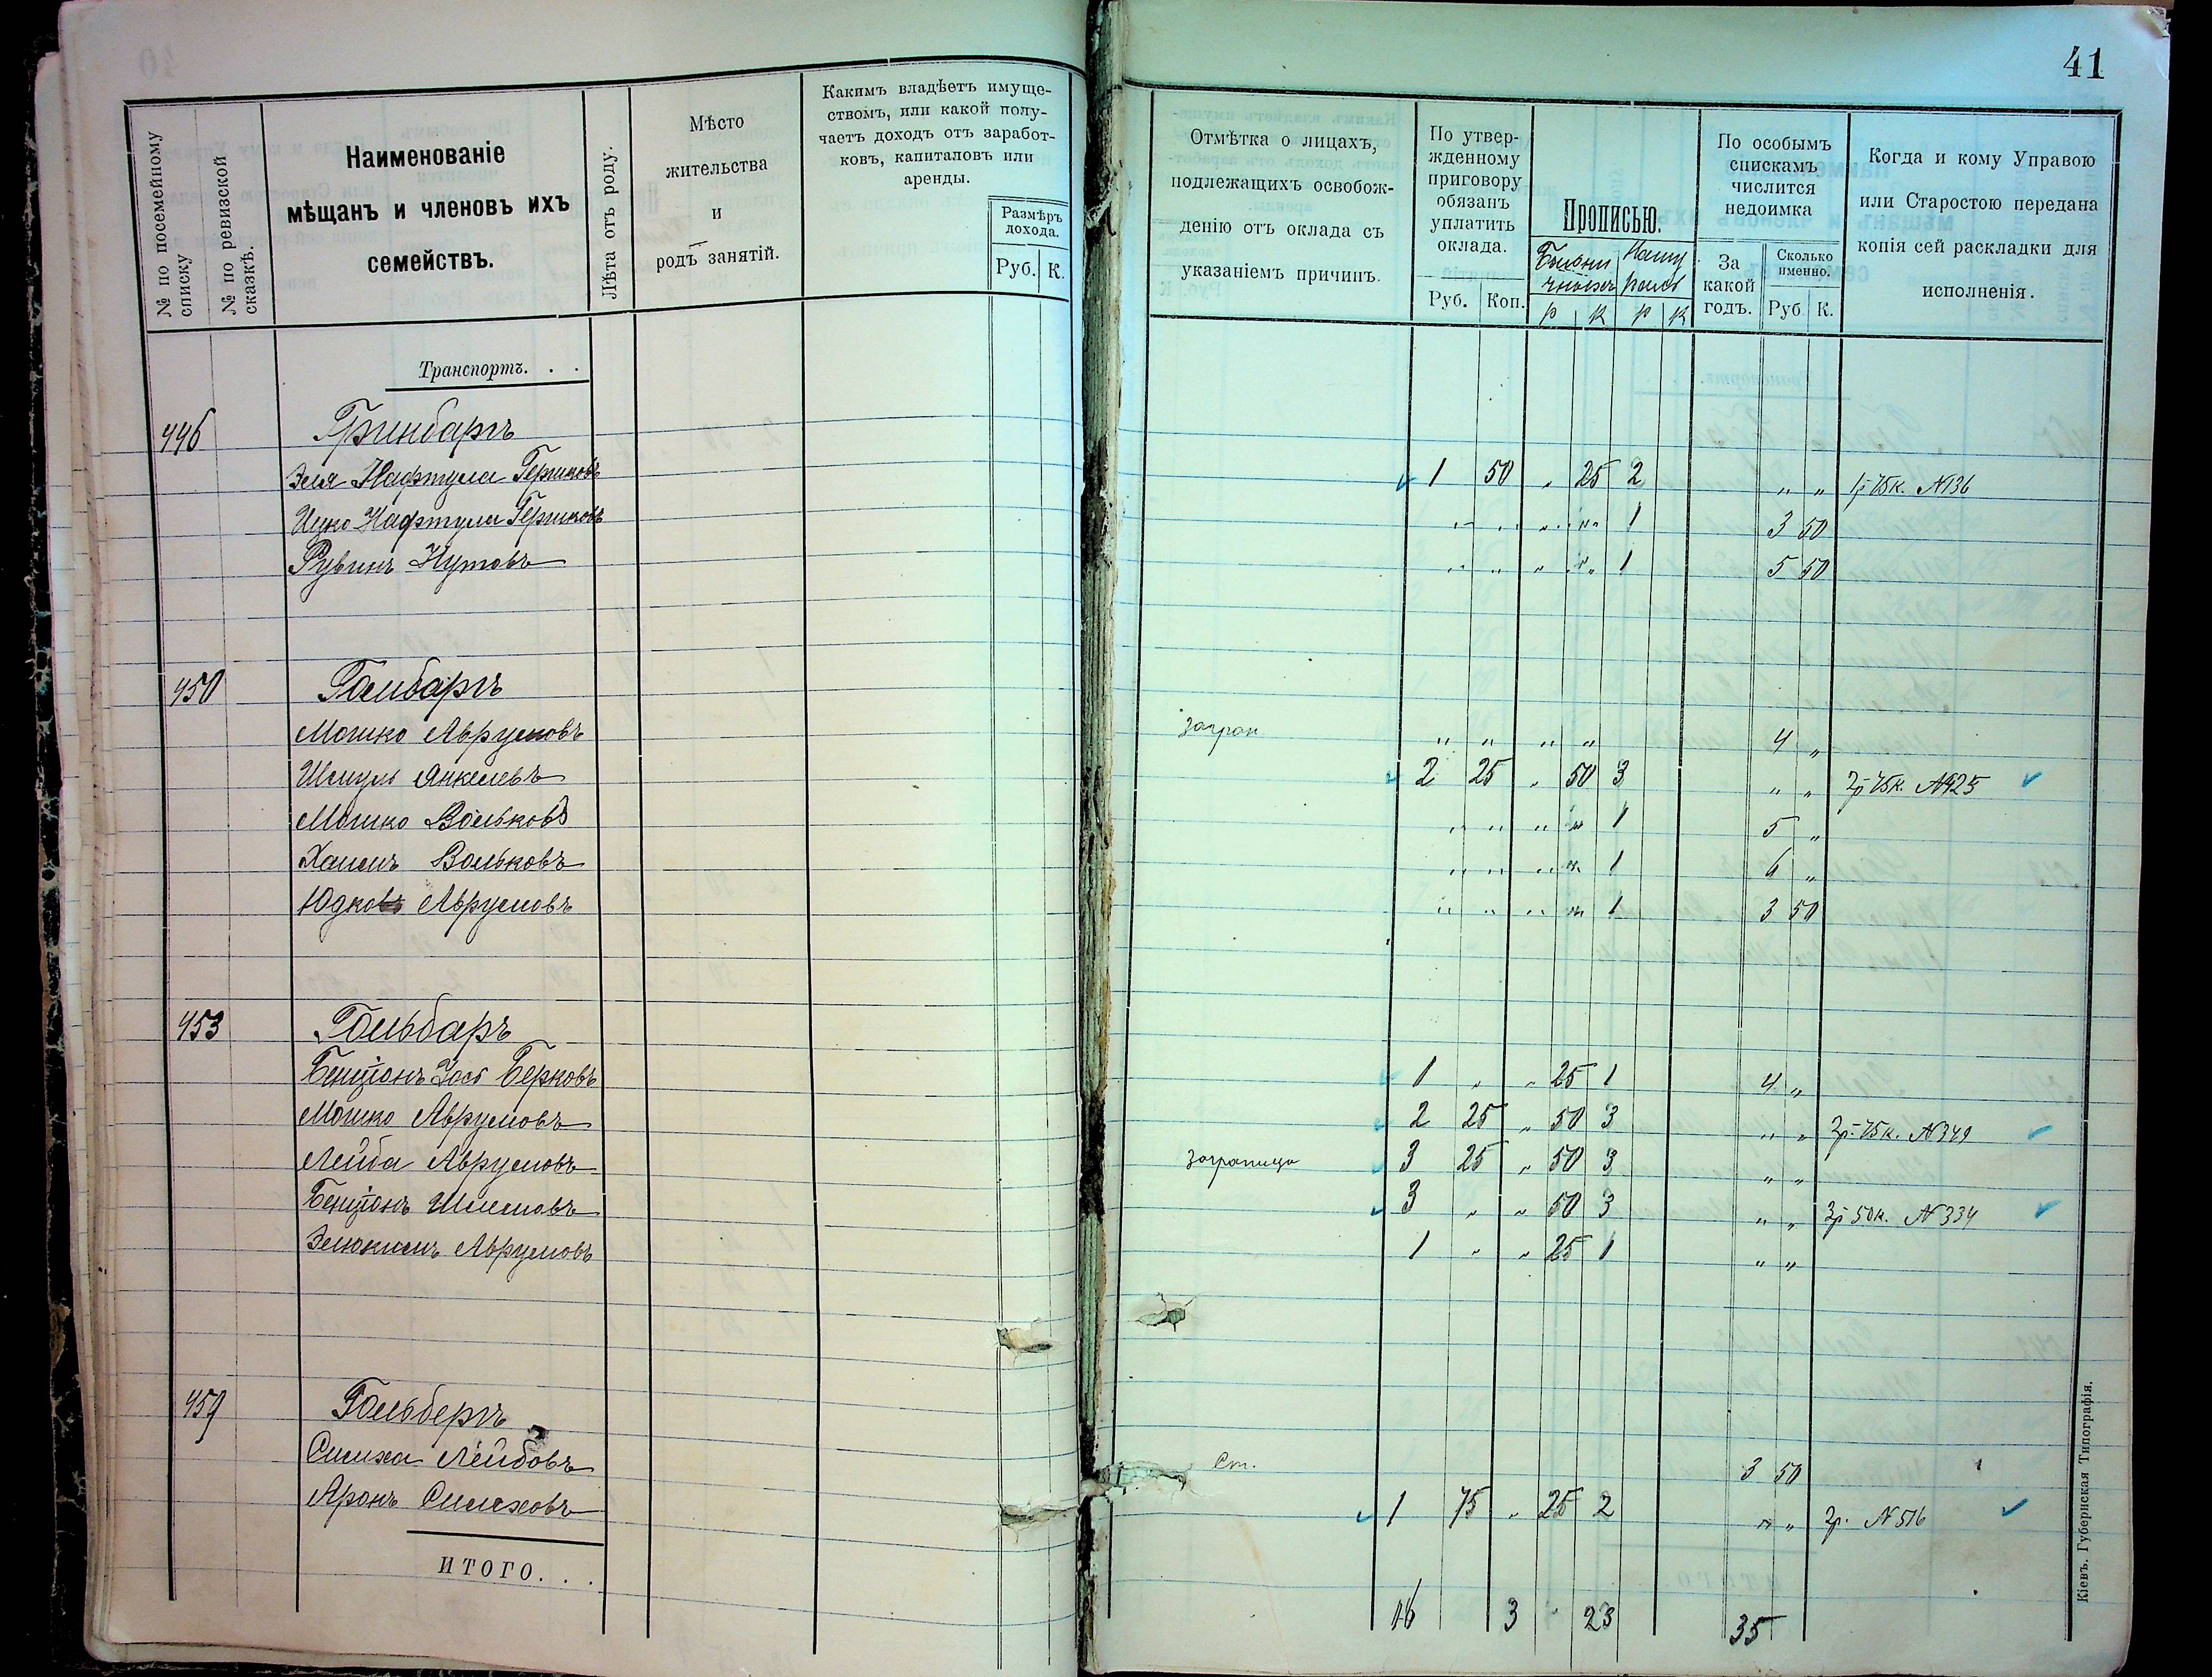 41
№ по посемейному списку
№ по ревизской сказкѣ.
Наименованіе
мѣщанъ и членовъ ихъ
семействъ.
Лѣта отъ роду.
Мѣсто
жительства
и
родъ занятій.
Какимъ владѣетъ имуще-
ствомъ, или какой полу-
чаетъ доходъ отъ заработ-
ковъ, капиталовъ или
аренды.
Размѣръ
дохода.
Руб. К.
Отмѣтка о лицахъ,
подлежащихъ освобож-
денію отъ оклада съ
указаніемъ причинъ.
По утвер-
жденному
приговору
обязанъ
уплатить
оклада.
Руб. Коп.
Прописью.
р к р к
По особымъ
спискамъ
числится
недоимка
За
какой
годъ.
Сколько
именно.
Руб К.
Когда и кому Управою
или Старостою передана
копія сей раскладки для
исполненія.
Транспортъ. . .
446 Гринбаргъ
Зеля Нафтула Гершковъ 1 50 „ 25 2 „ „ 1р 75к. №136
Ицко Нафтула Гершковъ „ „ „ „ 1 3 50
Рувинъ Нутовъ „ „ „ „ 1 5 50
450 Гольбаргъ
Мошко Аврумовъ загран „ „ „ „ 4 „
Шмуль Янкелевъ 2 25 „ 50 3 „ „ 2р 75к. №425
Мошко Вольковъ „ „ „ „ 1 5 „
Хаимъ Вольковъ „ „ „ „ 1 6 „
Юдко Аврумовъ „ „ „ „ 1 3 50
453 Гольбаръ
Бенціонъ Берковъ 1 „ „ 25 1 4 „
Мошко Аврумовъ 2 25 „ 50 3 „ „ 2р. 75к. №349
Лейба Аврумовъ заграница 3 25 „ 50 3 „ „
Бенціонъ Шлемовъ 3 „ „ 50 3 „ „ 3р 50к. №334
Аврумовъ 1 „ „ 25 1 „ „
459 Гольбергъ
Симха Лейбовъ Ст. 3 50
Аронъ Симховъ 1 75 „ 25 2 „ „ 2р. №516
ИТОГО. . .
16 3 23 35
Кіевъ. Губернская Типографія.